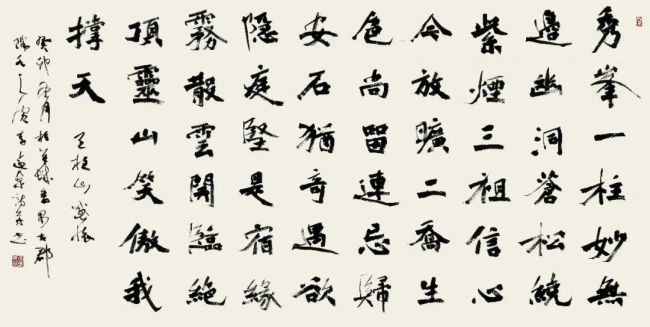 秀峯一柱妙無
邊幽洞蒼松繞
紫煙三祖信心
今放曠二喬生
色尚留連忘歸
安石猶奇遇欲
隱庭堅是宿緣
霧散雲開臨絕
頂靈山笑傲我
撐天
天柱山感懷
癸卯月於羊城番禺古郡
珠水之濱李遠東詩并書